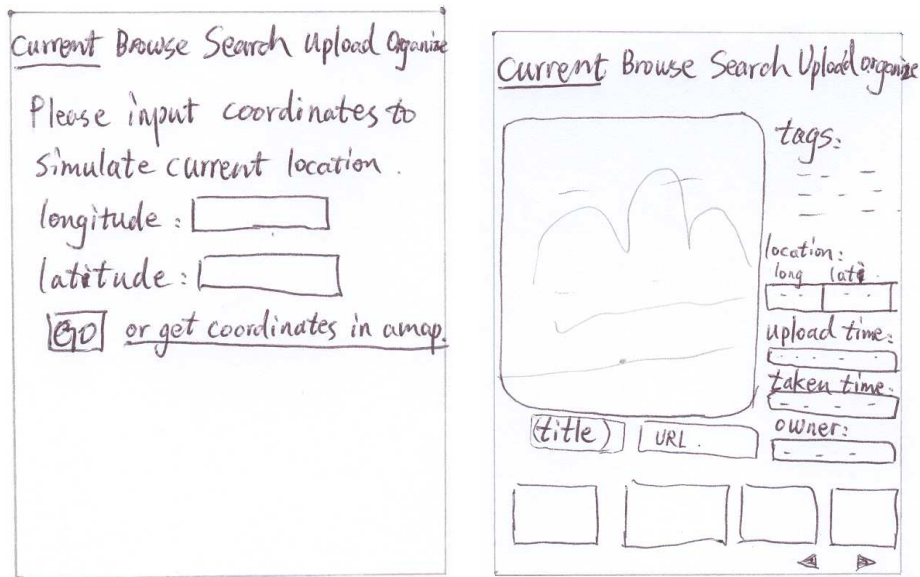 Current Browse Search Upload Organize
Please input coordinates to
simulate current location.
longitude:
latitude:
GO or get coordinates in amap.
Current Browse Search Upload organize
tags:
location:
long lati
upload time:
taken time:
owner:
(title) URL.